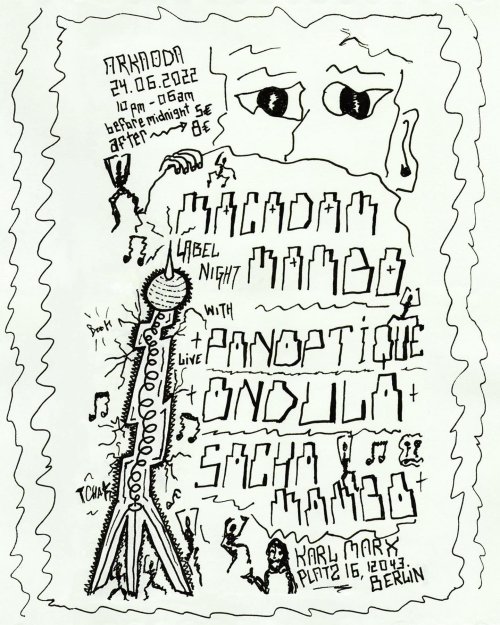 ARKAODA
24.06.2022
10pm - 06am
before midnight 5€
after 8€
MACADAM
LABEL NIGHT
MAMBO
WITH
Boom
LIVE
PANOPTIQUE
ONDULA
SACHA
TCHAK
MAMBO
KARL MARX
PLATZ 16, 12043.
BERLIN